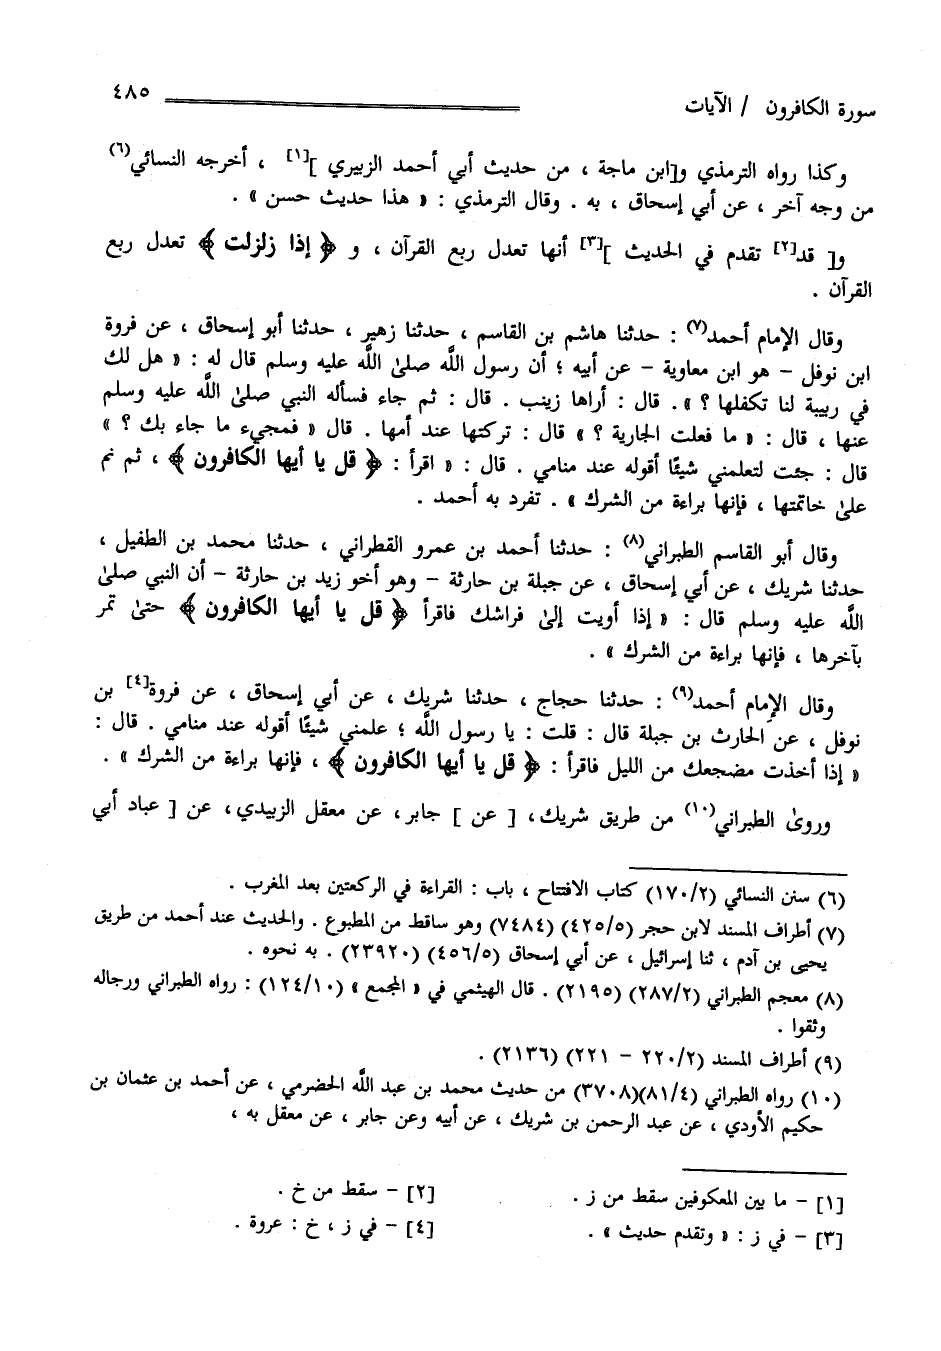 سورة الكافرون / الآيات ٤٨٥
وكذا رواه الترمذي و[ابن ماجة ، من حديث أبي أحمد الزبيري ][١] ، أخرجه النسائي(٦)
من وجه آخر ، عن أبي إسحاق ، به . وقال الترمذي : « هذا حديث حسن » .
و[ قد[٢] تقدم في الحديث ][٣] أنها تعدل ربع القرآن ، و ﴿ إذا زلزلت ﴾ تعدل ربع
القرآن .
وقال الإمام أحمد(٧) : حدثنا هاشم بن القاسم ، حدثنا زهير ، حدثنا أبو إسحاق ، عن فروة
ابن نوفل - هو ابن معاوية - عن أبيه ؛ أن رسول اللَّه صلىٰ اللَّه عليه وسلم قال له : « هل لك
في ربيبة لنا تكفلها ؟ ». قال : أراها زينب . قال : ثم جاء فسأله النبي صلىٰ اللَّه عليه وسلم
عنها ، قال : « ما فعلت الجارية ؟ » قال : تركتها عند أمها . قال « فمجيء ما جاء بك ؟ »
قال : جئت لتعلمني شيئًا أقوله عند منامي . قال : « اقرأ : ﴿ قل يا أيها الكافرون ﴾ ، ثم نم
علىٰ خاتمتها ، فإنها براءة من الشرك » . تفرد به أحمد .
وقال أبو القاسم الطبراني(٨) : حدثنا أحمد بن عمرو القطراني ، حدثنا محمد بن الطفيل ،
حدثنا شريك ، عن أبي إسحاق ، عن جبلة بن حارثة - وهو أخو زيد بن حارثة - أن النبي صلىٰ
اللَّه عليه وسلم قال : « إذا أويت إلىٰ فراشك فاقرأ ﴿ قل يا أيها الكافرون ﴾ حتىٰ تمر
بآخرها ، فإنها براءة من الشرك » .
وقال الإمام أحمد(٩) : حدثنا حجاج ، حدثنا شريك ، عن أبي إسحاق ، عن فروة[٤] بن
نوفل ، عن الحارث بن جبلة قال : قلت : يا رسول اللَّه ؛ علمني شيئًا أقوله عند منامي . قال :
« إذا أخذت مضجعك من الليل فاقرأ : ﴿ قل يا أيها الكافرون ﴾ ، فإنها براءة من الشرك » .
وروىٰ الطبراني(١٠) من طريق شريك، [ عن ] جابر، عن معقل الزبيدي، عن [ عباد أبي
(٦) سنن النسائي (١٧٠/٢) كتاب الافتتاح ، باب : القراءة في الركعتين بعد المغرب .
(٧) أطراف المسند لابن حجر (٤٢٥/٥) (٧٤٨٤) وهو ساقط من المطبوع . والحديث عند أحمد من طريق
يحيى بن آدم ، ثنا إسرائيل ، عن أبي إسحاق (٤٥٦/٥) (٢٣٩٢٠) . به نحوه .
(٨) معجم الطبراني (٢٨٧/٢) (٢١٩٥) . قال الهيثمي في « المجمع » (١٢٤/١٠) : رواه الطبراني ورجاله
وثقوا .
(٩) أطراف المسند (٢٢٠/٢ - ٢٢١) (٢١٣٦) .
(١٠) رواه الطبراني (٨١/٤)(٣٧٠٨) من حديث محمد بن عبد اللَّه الحضرمي ، عن أحمد بن عثمان بن
حكيم الأودي ، عن عبد الرحمن بن شريك ، عن أبيه وعن جابر ، عن معقل به ،
[١] - ما بين المعكوفين سقط من ز . [٢] - سقط من خ .
[٣] - في ز : « وتقدم حديث » . [٤] - في ز ، خ : عروة .